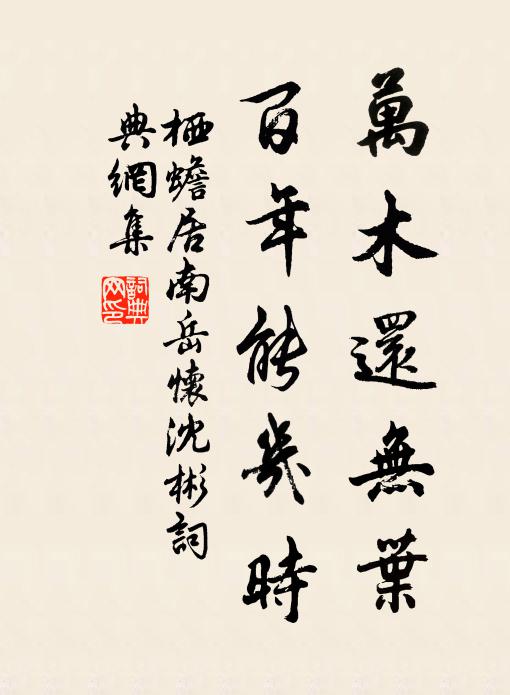 萬木還無葉
百年能幾時
栖蟾居南岳懷沈彬詞
典網集
詞典
网印